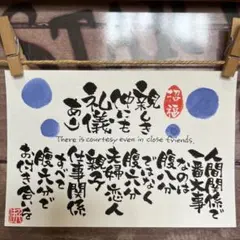 招福
親しき
仲にも
礼儀
あり
There is courtesy even in close friends.
人間関係で
一番大事
なのは
腹八分
ではなく
腹六分
夫婦 恋人
親子
仕事関係
すべて
腹六分で
お付き合いを